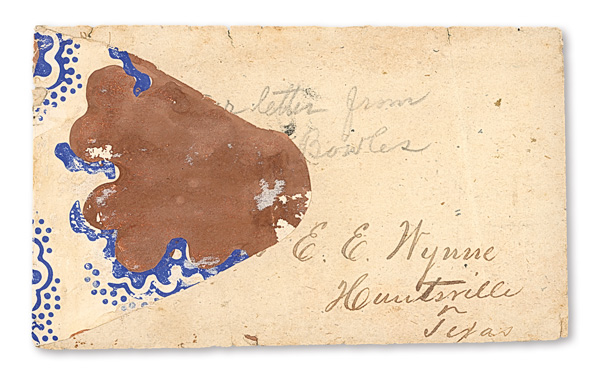 letter from
Bowles
E. E. Wynne
Huntsville
Texas